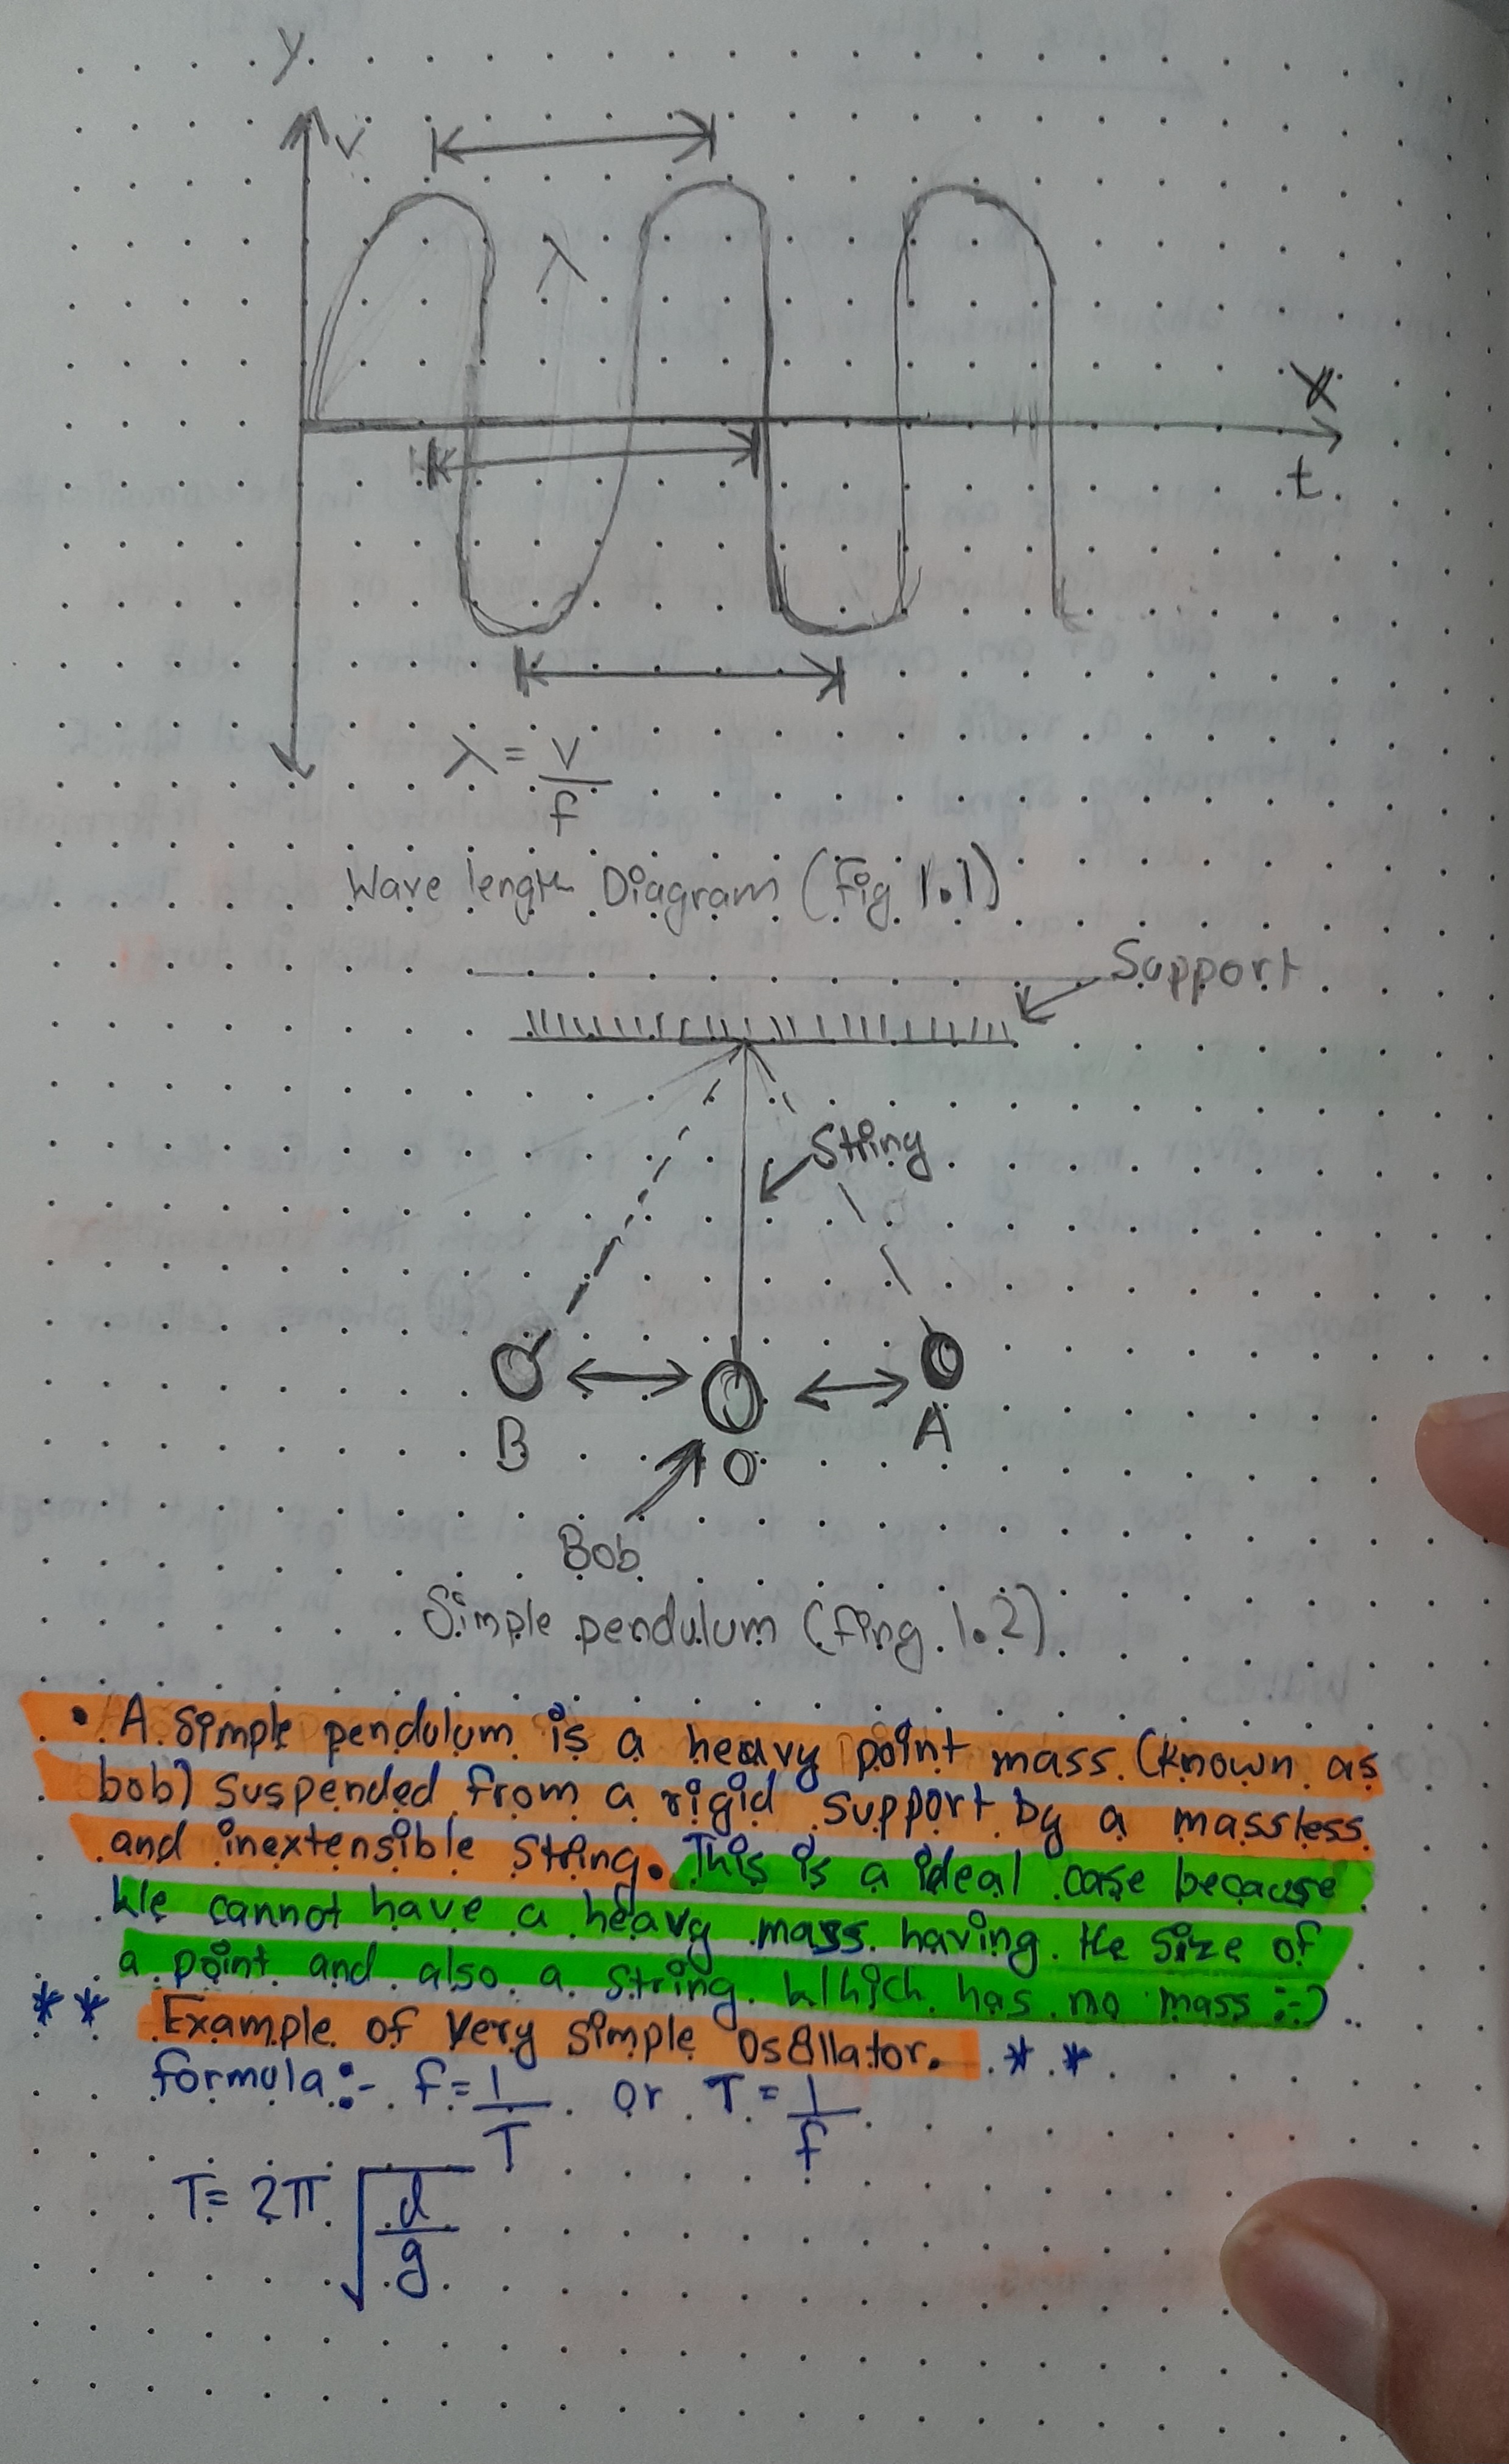 y
v
λ
x
t
λ = v/f
Wave length Diagram (Fig 1.1)
Support
String
B
O
A
Bob
Simple pendulum (fing. 1.2)
• A simple pendulum is a heavy point mass (known as
bob) suspended from a rigid support by a massless
and inextensible string. This is a ideal case because
We cannot have a heavy mass having the size of
a point and also a string Which has no mass :-)
** Example of very simple oscillator. **
formula:- f = 1/T or T = 1/f
T = 2π √(d/g)